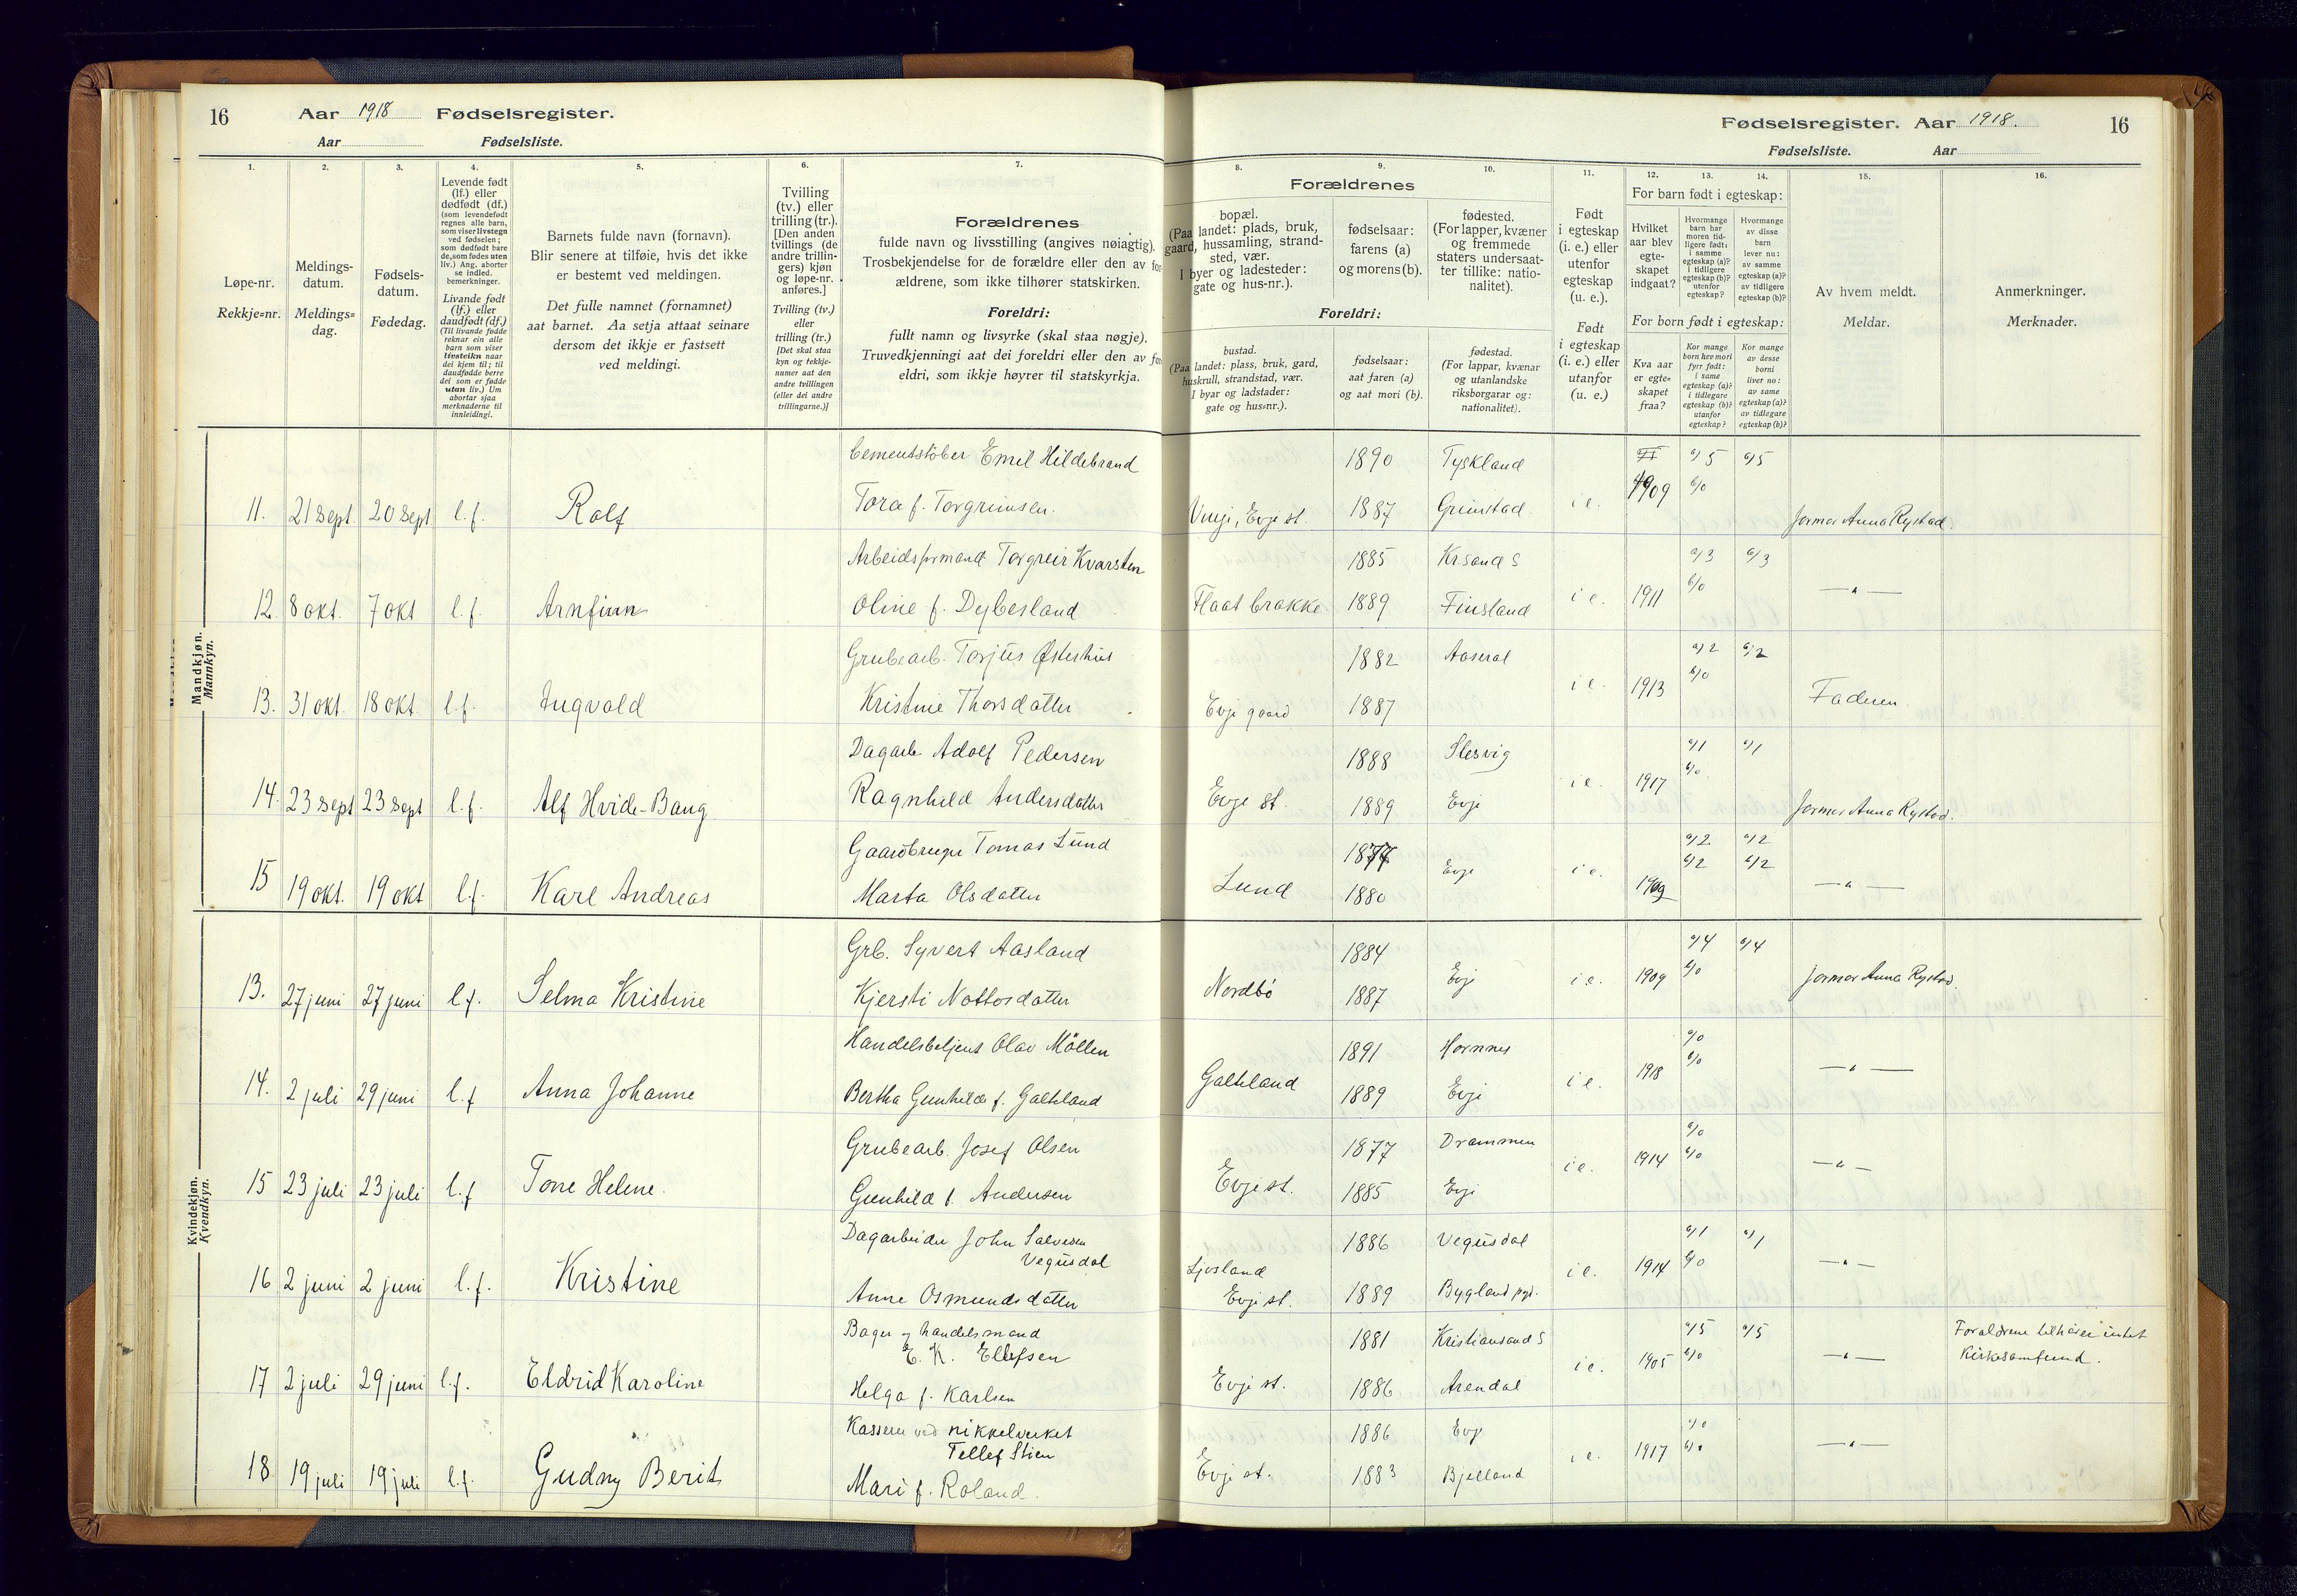 16 Aar 1918 Fødselsregister.
Aar Fødselsliste.
Fødselsregister. Aar 1918. 16
Fødselsliste. Aar
1. 2. 3. 4. 5. 6. 7. 8. 9. 10. 11. 12. 13. 14. 15. 16.
Løpe-nr.
Rekkje=nr.
Meldings-
datum.
Meldings=
dag.
Fødsels-
datum.
Fødedag.
Levende født
(lf.) eller
dødfødt (df.)
(som levendefødt
regnes alle barn,
som viser livstegn
ved fødselen;
som dødfødt bare
de, som fødes uten
liv.) Ang. aborter
se indled.
bemerkninger.
Livande født
(lf.) eller
daudfødt (df.)
(Til livande fødde
reknar ein alle
born som viser
livsteikn naar
dei kjem til; til
daudfødde berre
dei som er fødde
utan liv.) Um
abortar sjaa
merknaderne til
innleidingi.
Barnets fulde navn (fornavn).
Blir senere at tilføie, hvis det ikke
er bestemt ved meldingen.
Det fulle namnet (fornamnet)
aat barnet. Aa setja attaat seinare
dersom det ikkje er fastsett
ved meldingi.
Tvilling
(tv.) eller
trilling (tr.).
[Den anden
tvillings (de
andre trillin-
gers) kjøn
og løpe-nr.
anføres.]
Tvilling (tv.)
eller
trilling (tr.)
[Det skal staa
kyn og rekkje-
numer aat den
andre tvillingen
(eller dei andre
trillingarne.)]
Forældrenes
fulde navn og livsstilling (angives nøiagtig).
Trosbekjendelse for de forældre eller den av for
ældrene, som ikke tilhører statskirken.
Foreldri:
fullt namn og livsyrke (skal staa nøgje).
Truvedkjenningi aat dei foreldri eller den av for
eldri, som ikkje høyrer til statskyrkja.
Forældrenes
bopæl.
(Paa landet: plads, bruk,
gaard, hussamling, strand-
sted, vær.
I byer og ladesteder:
gate og hus-nr.).
fødselsaar:
farens (a)
og morens (b).
fødested.
(For lapper, kvæner
og fremmede
staters undersaat-
ter tillike: natio-
nalitet).
Foreldri:
bustad.
(Paa landet: plass, bruk, gard,
huskrull, strandstad, vær.
I byar og ladstader:
gate og hus=nr.).
fødselsaar:
aat faren (a)
og aat mori (b).
fødestad.
(For lappar, kvænar
og utanlandske
riksborgarar og:
nationalitet).
Født
i egteskap
(i. e.) eller
utenfor
egteskap
(u. e.).
Født
i egteskap
(i. e.) eller
utanfor
(u. e.)
For barn født i egteskap:
Hvilket
aar blev
egte-
skapet
indgaat?
Hvormange
barn har
moren tid-
ligere født:
i samme
egteskap (a)?
i tidligere
egteskap (b)?
utenfor
egteskap?
Hvormange
av disse
barn
lever nu:
av samme
egteskap (a)?
av tidligere
egteskap (b)?
For born født i egteskap:
Kva aar
er egte-
skapet
fraa?
Kor mange
born hev mori
fyrr født:
i same
egteskap (a)?
i tidlegare
egteskap (b)?
utanfor
egteskap?
Kor mange
av desse
borni
liver no:
av same
egteskap (a)?
av tidlegare
egteskap (b)?
Av hvem meldt.
Meldar.
Anmerkninger.
Merknader.
Mandkjøn.
Mannkyn.
Cementstöber Emil Hildebrand 1890 Tyskland a/5 a/5
11. 21 Sept. 20 Sept. l.f. Rolf Tora f. Torgrimsen. Evje st. 1887 Grimstad i e. 1909 b/0 Jormor Anna Rystad.
Arbeidsformand Torgreir Kvarsten 1885 Kr.sand S a/3 a/3
12. 8 okt. 7 okt l.f. Arnfinn Oline f. Dybesland Flaat brakke 1889 Finsland i e. 1911 b/0 — " —
Grubearb. Torjus Østerhus 1882 Aaseral a/2 a/2
13. 31 okt. 18 okt. l.f. Ingvald Kristine Thorsdatter Evje gaard 1887 i e. 1913 b/0 Faderen.
Dagarb. Adolf Pedersen 1888 Slesvig a/1 a/1
14. 23 Sept 23 Sept l.f. Alf Hvide-Bang Ragnhild Andersdatter Evje st. 1889 Evje i e. 1917 b/0 Jormor Anna Rystad.
Gaardbruger Tomas Lund 1877 a/2 a/2
15 19 okt. 19 okt l.f. Karl Andreas Marta Olsdatter Lund 1880 Evje i e. 1909 b/2 b/2 — " —
Kvindekjøn.
Kvendkyn.
Grb. Syvert Aasland 1884 a/4 a/4
13. 27 juni 27 juni l.f. Selma Kristine Kjersti Nottosdatter Nordbö 1887 Evj i e. 1909 b/0 jormor Anna Rystad.
Handelsbetjent Olav Möllen 1891 Hornnes a/0
14. 2 juli 29 juni l.f Anna Johanne Bertha Gunhilde f. Galteland Galteland 1889 Evje i e. 1918 b/0 — " —
Grubearb. Josef Olsen 1877 Drammen a/0
15 23 juli 23 juli l.f Tone Helene. Gunhild f. Andersen Evje st. 1885 Evje i e. 1914 b/0 — " —
Dagarbeider John Salvesen
Vegusdal 1886 Vegusdal a/1 a/1
16 2 juni 2 juni l.f. Kristine Anne Osmundsdatter Ljosland
Evje st. 1889 Bygland pgd. i e. 1914 b/0 — " —
Bager og handelsmand
E. K. Ellefsen 1881 Kristiansand S a/5 a/5 Forældrene tilhører intet
Kirkesamfund.
17 2 juli 29 juni l.f. Eldrid Karoline Helga f. Karlsen Evje st. 1886 Arendal i e. 1905 b/0 — " —
Kasserer ved nikkelverket
Tellef Stien 1886 Evje a/0
18 19 juli 19 juli l.f. Gudny Berit Mari f. Roland. Evje st. 1883 Bjelland i e. 1917 b/0 — " —